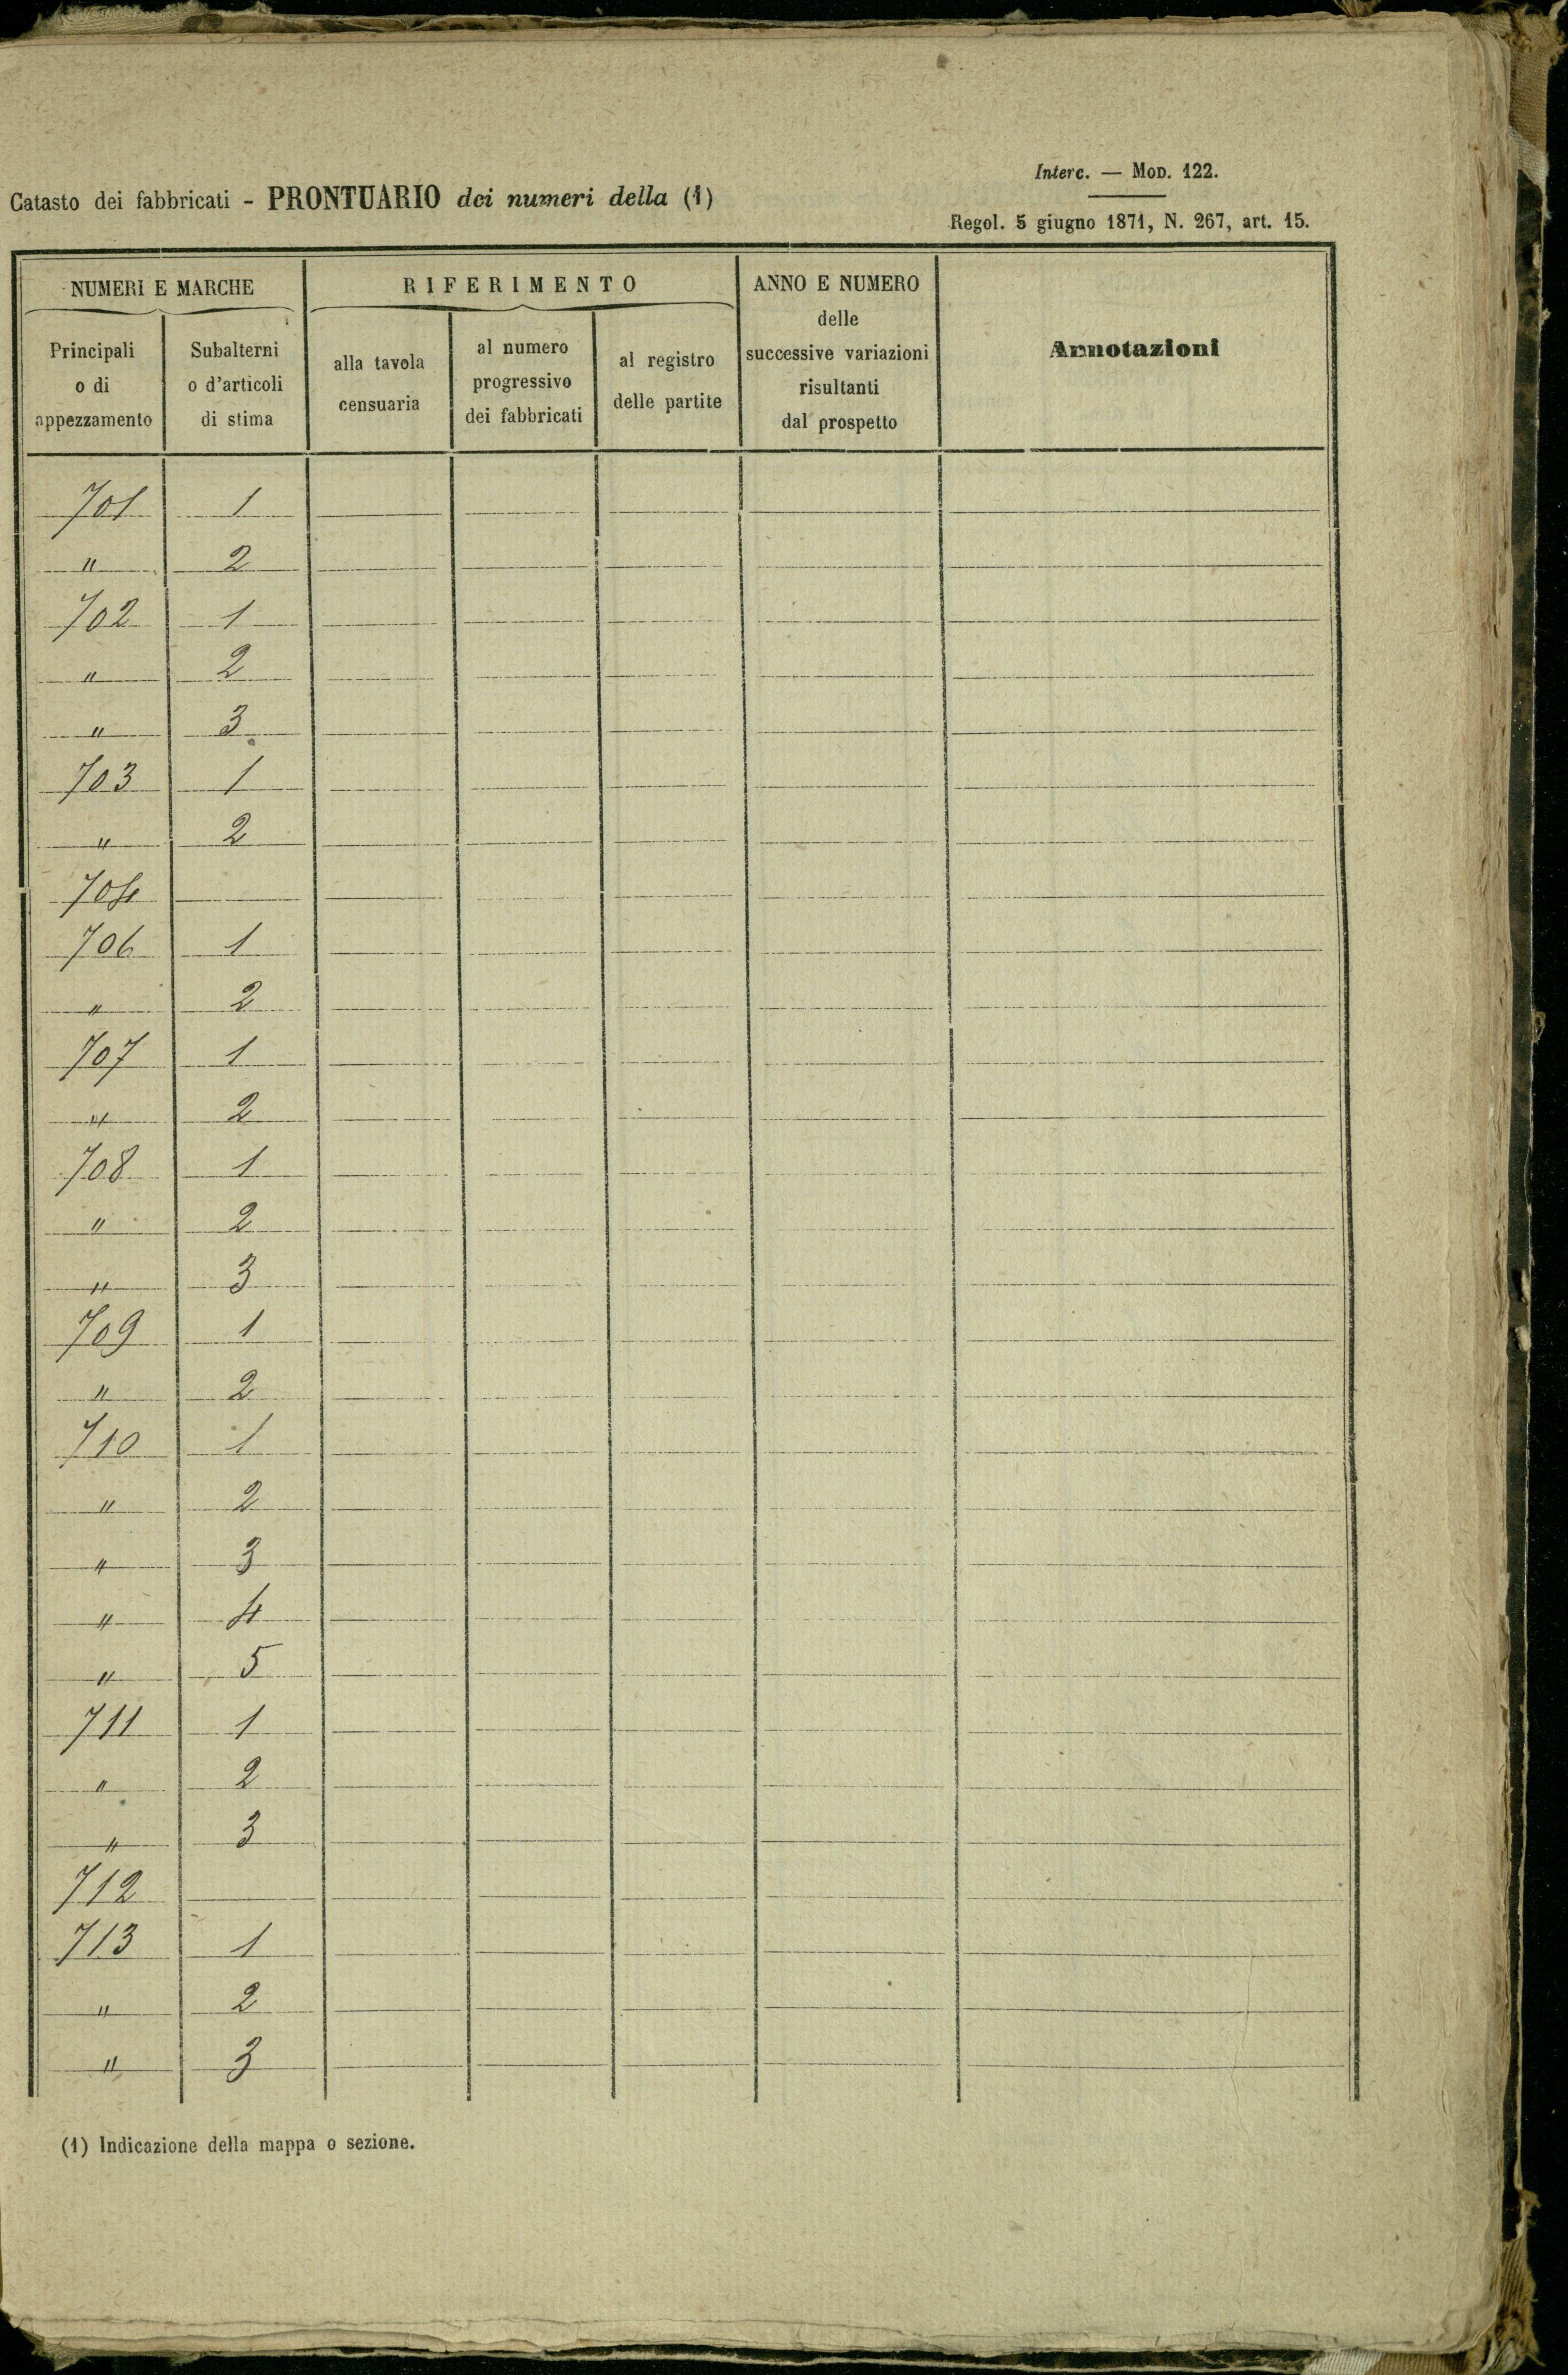 Interc. — Mod. 122.
Catasto dei fabbricati - PRONTUARIO dei numeri della (1)
Regol. 5 giugno 1871, N. 267, art. 15.
NUMERI E MARCHE
Principali o di appezzamento
Subalterni o d'articoli di stima
RIFERIMENTO
alla tavola censuaria
al numero progressivo dei fabbricati
al registro delle partite
ANNO E NUMERO delle successive variazioni risultanti dal prospetto
Annotazioni
701 1
" 2
702 1
" 2
" 3
703 1
" 2
704
706 1
" 2
707 1
" 2
708 1
" 2
" 3
709 1
" 2
710 1
" 2
" 3
" 4
" 5
711 1
" 2
" 3
712
713 1
" 2
" 3
(1) Indicazione della mappa o sezione.